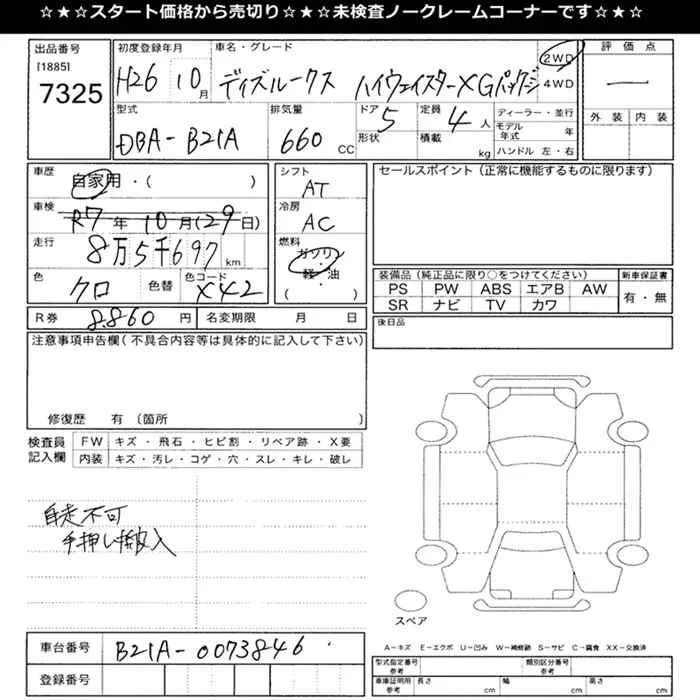 ☆★☆★スタート価格から売切り☆★☆★未検査ノークレームコーナーです☆★☆★
出品番号 初度登録年月 車名・グレード 評価点
[1885]
7325 H26 10月 ディズルークス ハイウェイスターXGパッケジ 2WD 4WD ー
型式 排気量 ドア 5 定員 4人 ディーラー・並行 外装 内装
DBA-B21A 660 CC 形状 積載 kg モデル年式 年
ハンドル 左・右
車歴 自家用・( ) シフト AT セールスポイント(正常に機能するものに限ります)
車検 R7年10月(29日) 冷房 AC
走行 8万5千697 km 燃料 ガソリン・軽・油 ( )
色 クロ 色替 色コード X42 装備品(純正品に限り○をつけてください) 新車保証書
PS PW ABS エアB AW 有・無
SR ナビ TV カワ
R券 8.860円 名変期限 月 日 後日品
注意事項申告欄(不具合内容等は具体的に記入して下さい)
修復歴 有〔箇所
検査員記入欄 FW キズ・飛石・ヒビ割・リペア跡・X要
内装 キズ・汚レ・コゲ・穴・スレ・キレ・破レ
自走不可
手押し搬入
スペア
車台番号 B21A-0073846
A-キズ E-エクボ U-凹み W-補修跡 S-サビ C-腐食 XX-交換済
登録番号 型式指定番号 参考 類別区分番号 参考
車庫証明用 参考 長さ cm 幅 cm 高さ cm